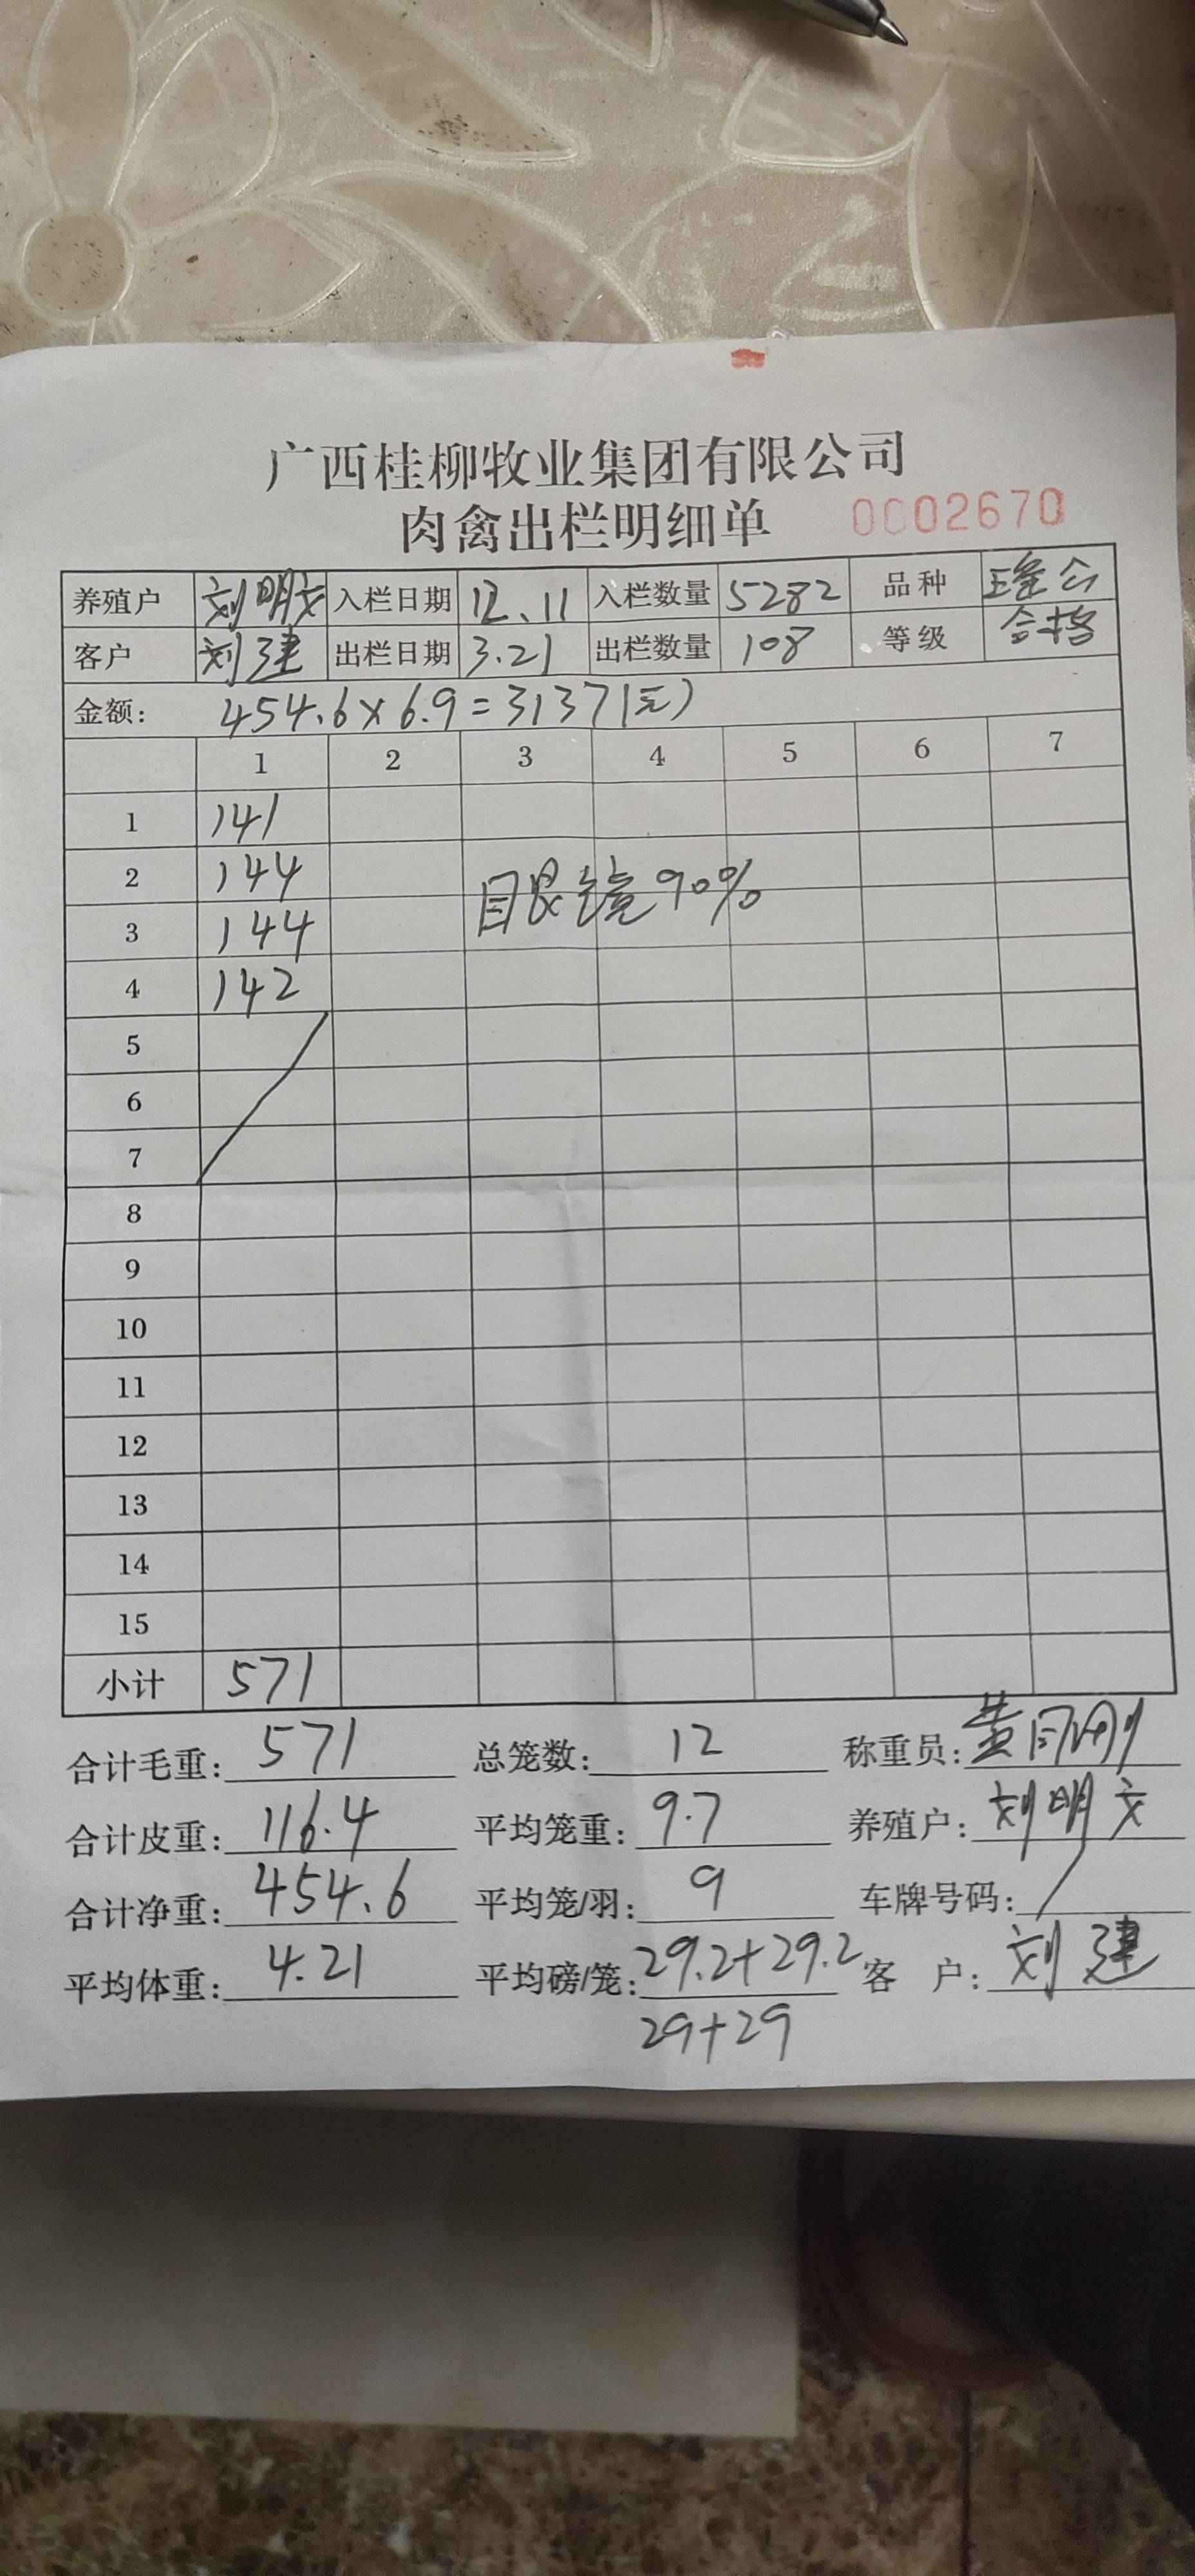 广西桂柳牧业集团有限公司
肉禽出栏明细单 0002670
养殖户 刘明文 入栏日期 12.11 入栏数量 5282 品种
客户 刘建 出栏日期 3.21 出栏数量 108 等级 合格
金额: 454.6×6.9=3137(元)
1 2 3 4 5 6 7
1 141
2 144
眼镜90%
3 144
4 142
5
6
7
8
9
10
11
12
13
14
15
小计 571
合计毛重: 571 总笼数: 12 称重员: 黄
合计皮重: 116.4 平均笼重: 9.7 养殖户: 刘明文
合计净重: 454.6 平均笼/羽: 9 车牌号码: /
平均体重: 4.21 平均磅/笼: 29.2+29.2 客 户: 刘建
29+29